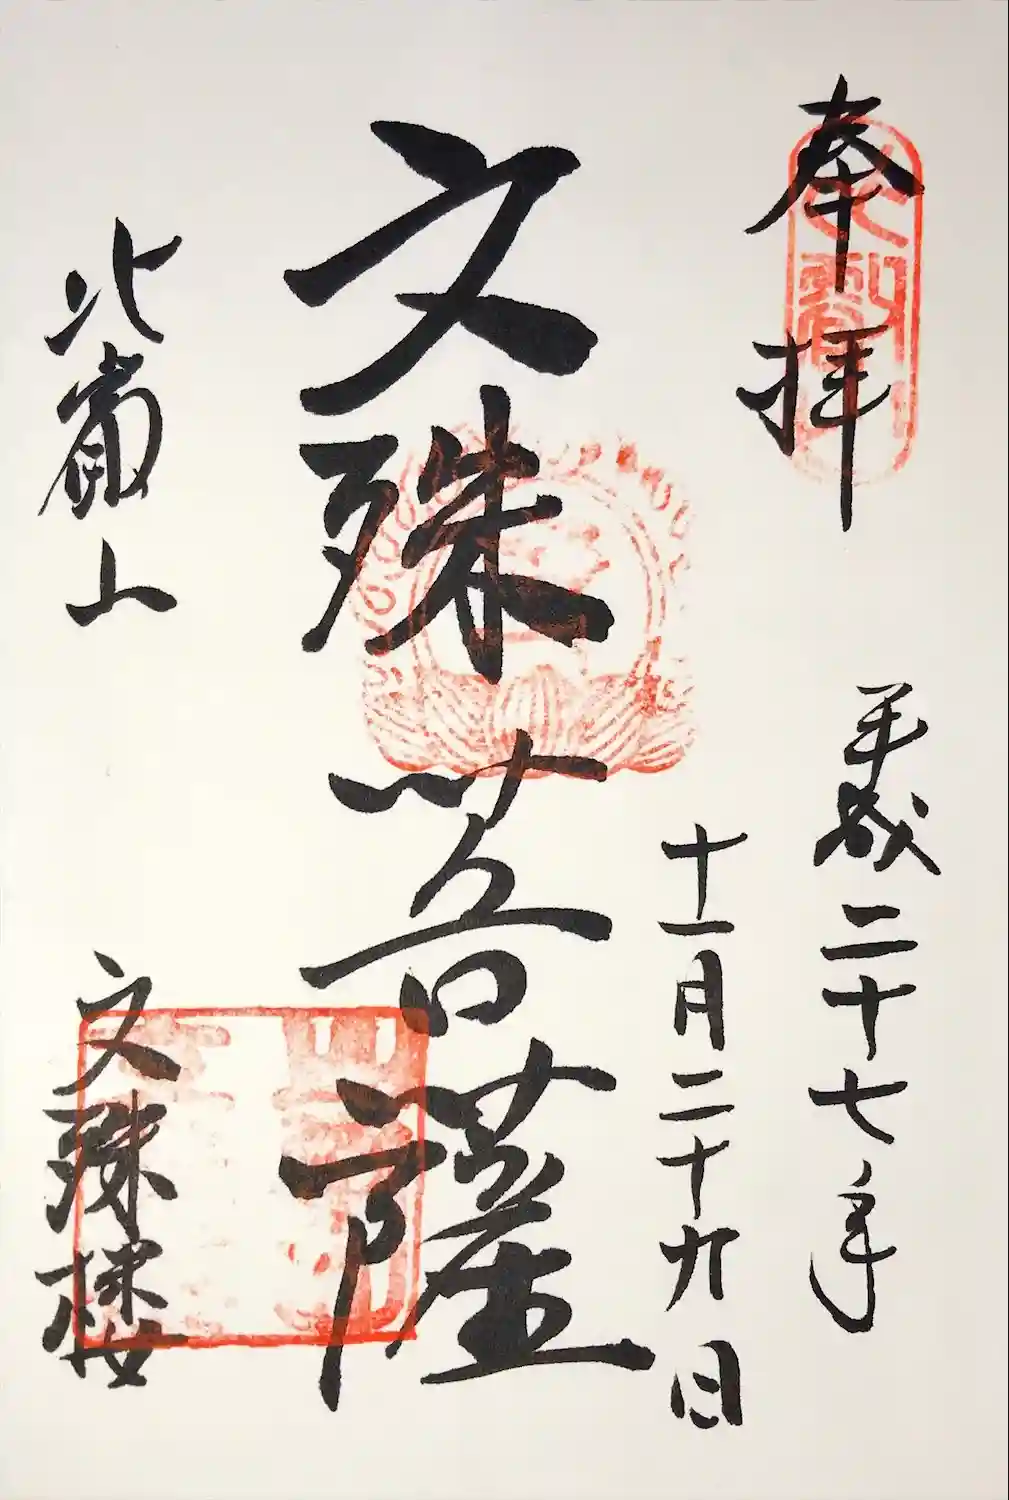 奉拝
平成二十七年
十一月二十九日
文殊菩薩
比叡山
文殊楼